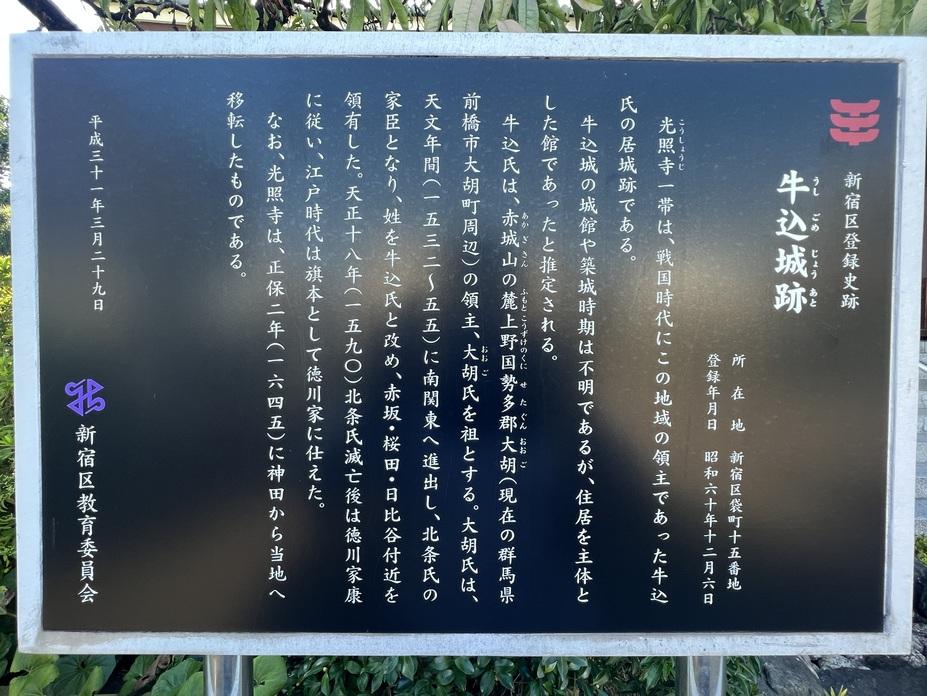 新宿区登録史跡
牛込城跡
うしごめじょうあと
所在地 新宿区袋町十五番地
登録年月日 昭和六十年十二月六日
光照寺一帯は、戦国時代にこの地域の領主であった牛込
こうしょうじ
氏の居城跡である。
牛込城の城館や築城時期は不明であるが、住居を主体と
した館であったと推定される。
牛込氏は、赤城山の麓上野国勢多郡大胡（現在の群馬県
あかぎさん ふもとこうずけのくに せたぐん おおご
前橋市大胡町周辺）の領主、大胡氏を祖とする。大胡氏は、
おおご
天文年間（一五三二～五五）に南関東へ進出し、北条氏の
家臣となり、姓を牛込氏と改め、赤坂・桜田・日比谷付近を
領有した。天正十八年（一五九〇）北条氏滅亡後は徳川家康
に従い、江戸時代は旗本として徳川家に仕えた。
なお、光照寺は、正保二年（一六四五）に神田から当地へ
移転したものである。
平成三十一年三月二十九日
新宿区教育委員会